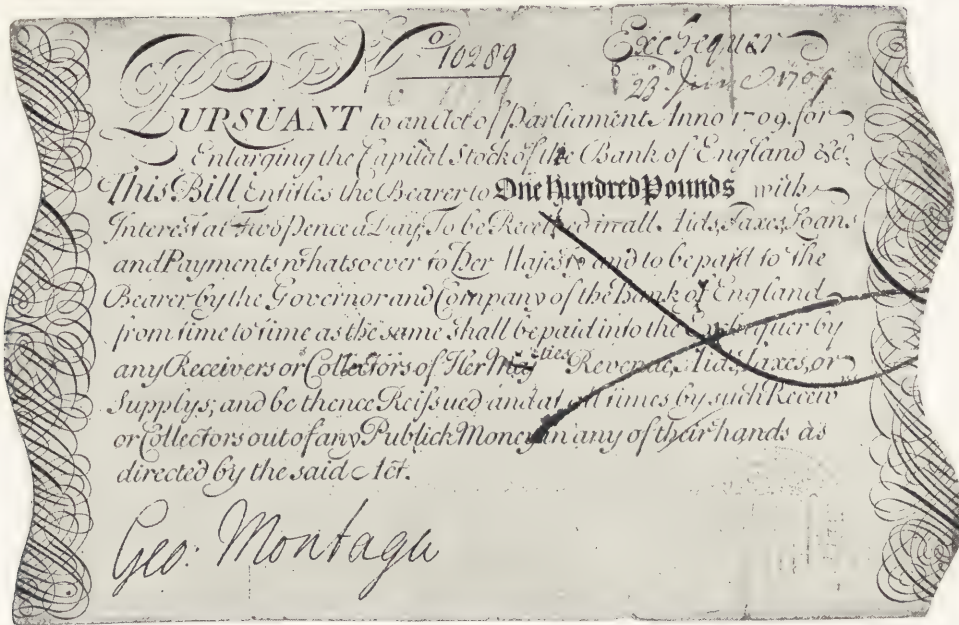 No 10289 Exchequer
23o June 1709
PURSUANT to an Act of Parliament Anno 1709. for
Enlarging the Capital Stock of the Bank of England &c.
This Bill Entitles the Bearer to One Hundred Pounds with
Interest at Two Pence a Day, To be Received in all Aids, Taxes, Loans
and Payments whatsoever to Her Majesty and to be paid to the
Bearer by the Governor and Company of the Bank of England
from time to time as the same shall be paid into the Exchequer by
any Receivers or Collectors of Her Majties Revenue, Aids, Taxes, or
Supplys; and be thence Reissued and at all times by such Receiv
or Collectors out of any Publick Money in any of their hands as
directed by the said Act.
Geo: Montagu